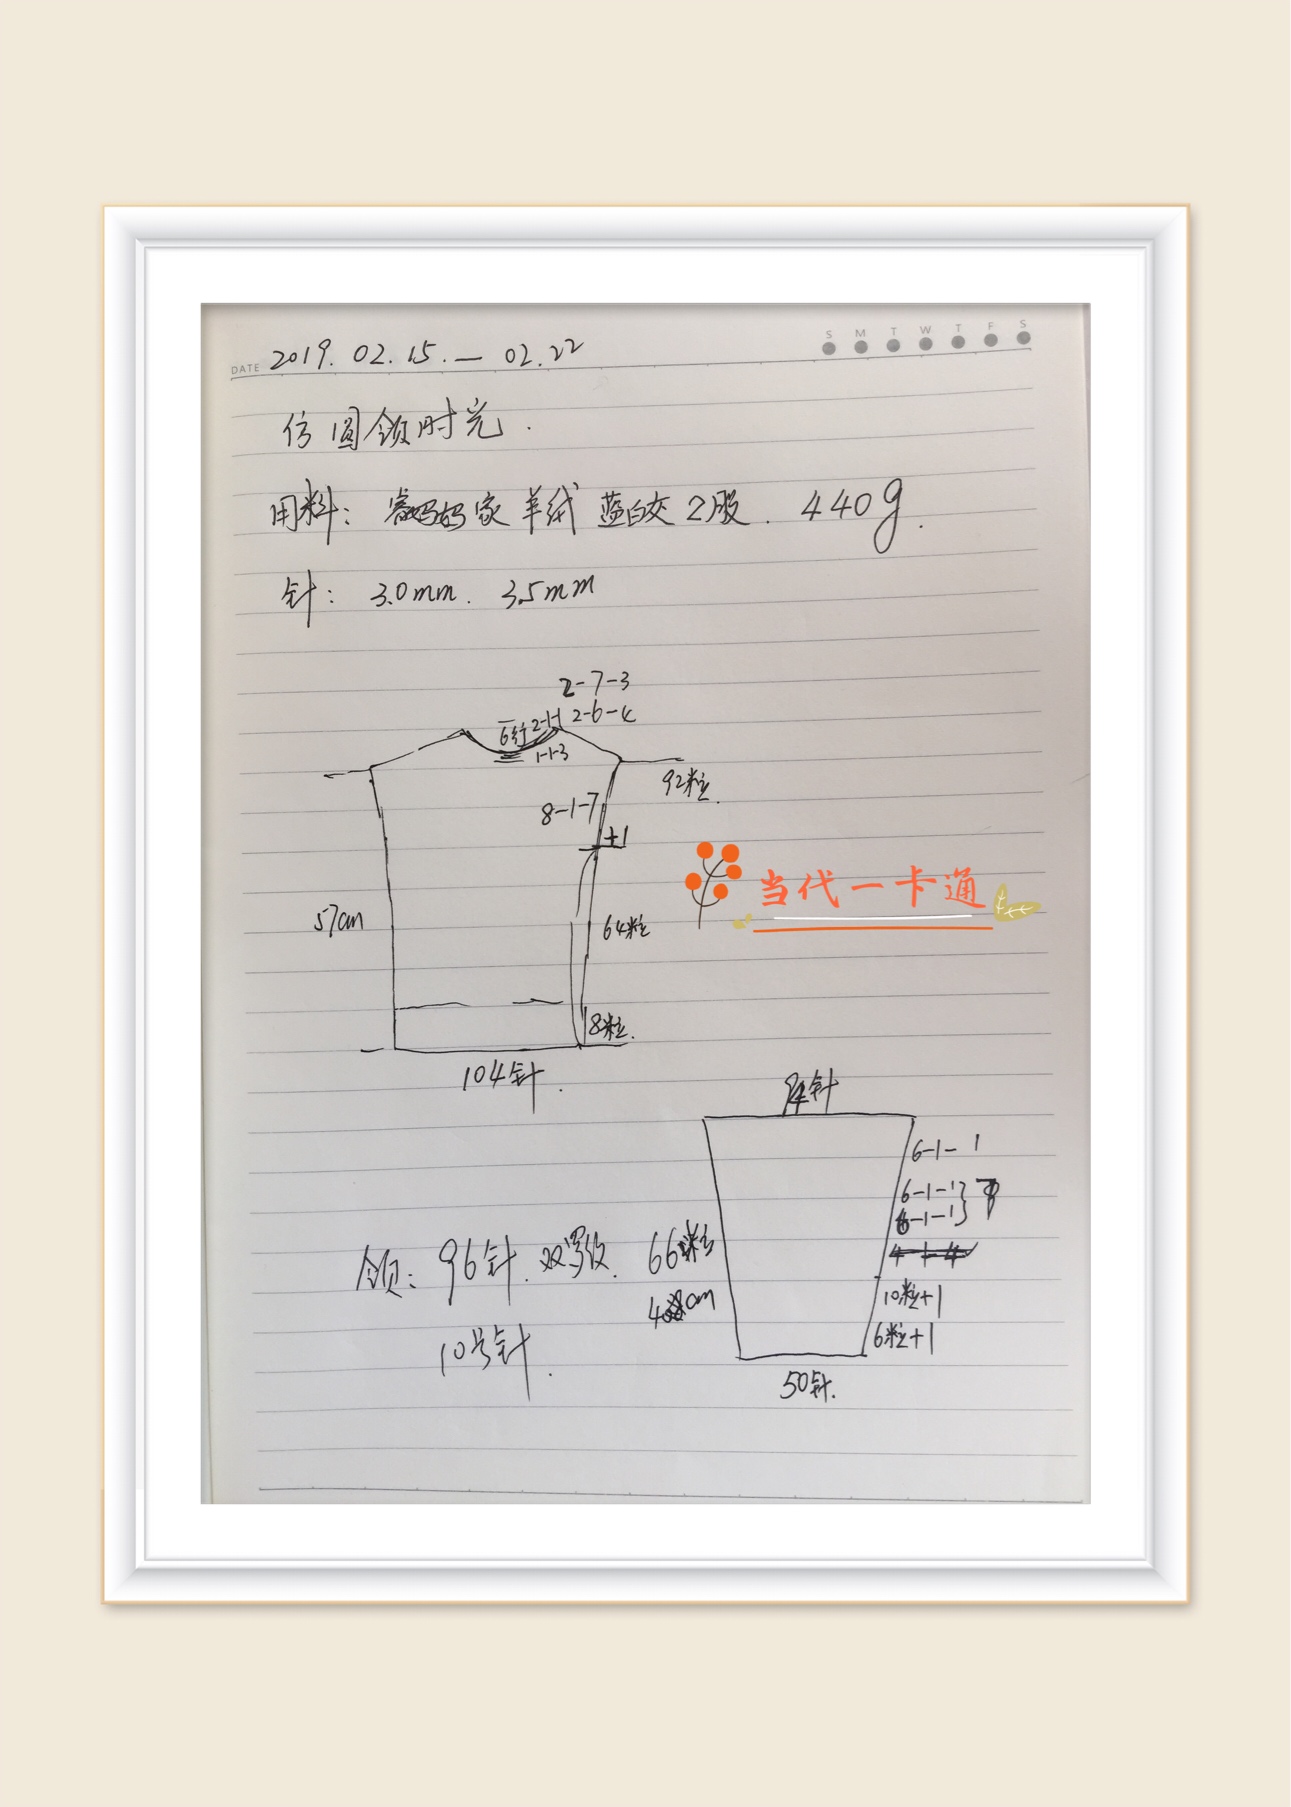 S M T W T F S
DATE 2019. 02. 15. — 02. 22
仿圆领时光.
用料: 睿妈妈家羊绒 蓝白灰2股. 440g.
针: 3.0mm. 3.5mm
2-7-3
2-6-4
6行 2-1-1
1-1-3
92粒.
8-1-7
+1
当代一卡通
57cm
64粒
8粒.
104针.
针
6-1-1
6-1-1
6-1-1
领: 96针. 双罗纹. 66粒
10粒+1
6粒+1
10号针.
50针.